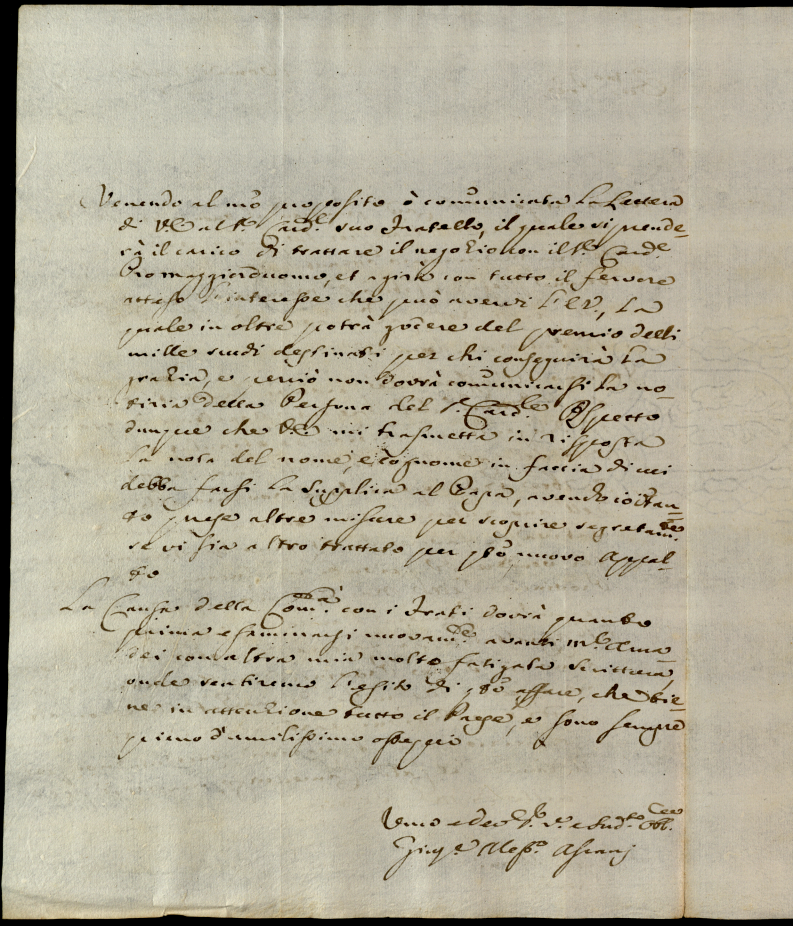 Venendo al mio proposito ò comunicata la Lettera
di V.E. al Sr. Card.l suo Fratello, il quale si prende-
rà il carico di trattare il negozio con il Sr. Card.le
Promaggiorduomo, et agirà con tutto il fervore
atteso l'interesse che può avervi l'E.V., la
quale in oltre potrà godere del premio delli
mille scudi destinati per chi conseguirà la
grazia, e perciò non dovrà comunicarsi la no-
tizia della Persona del Sr. Card.le Aspetto
dunque che V.E. mi trasmetta in risposta
la nota del nome, e cognome in faccia di cui
debba farsi la Supplica al Papa, avendo io intan-
to prese altre misure per scoprire segretam.te
se vi sia altro trattato per sud.o nuovo Appal-
to
La Causa della Com.tà con i Frati dovrà quanto
prima esaminarsi nuovam.te avanti M.r Ama-
dei con altra mia molto fatigata scrittura,
onde sentiremo l'esito di sud.o affare, che tie-
ne in attenzione tutto il Paese, e sono sempre
pieno d'umilissimo ossequio
Umo e dev.mo
Aless.o Ascanj